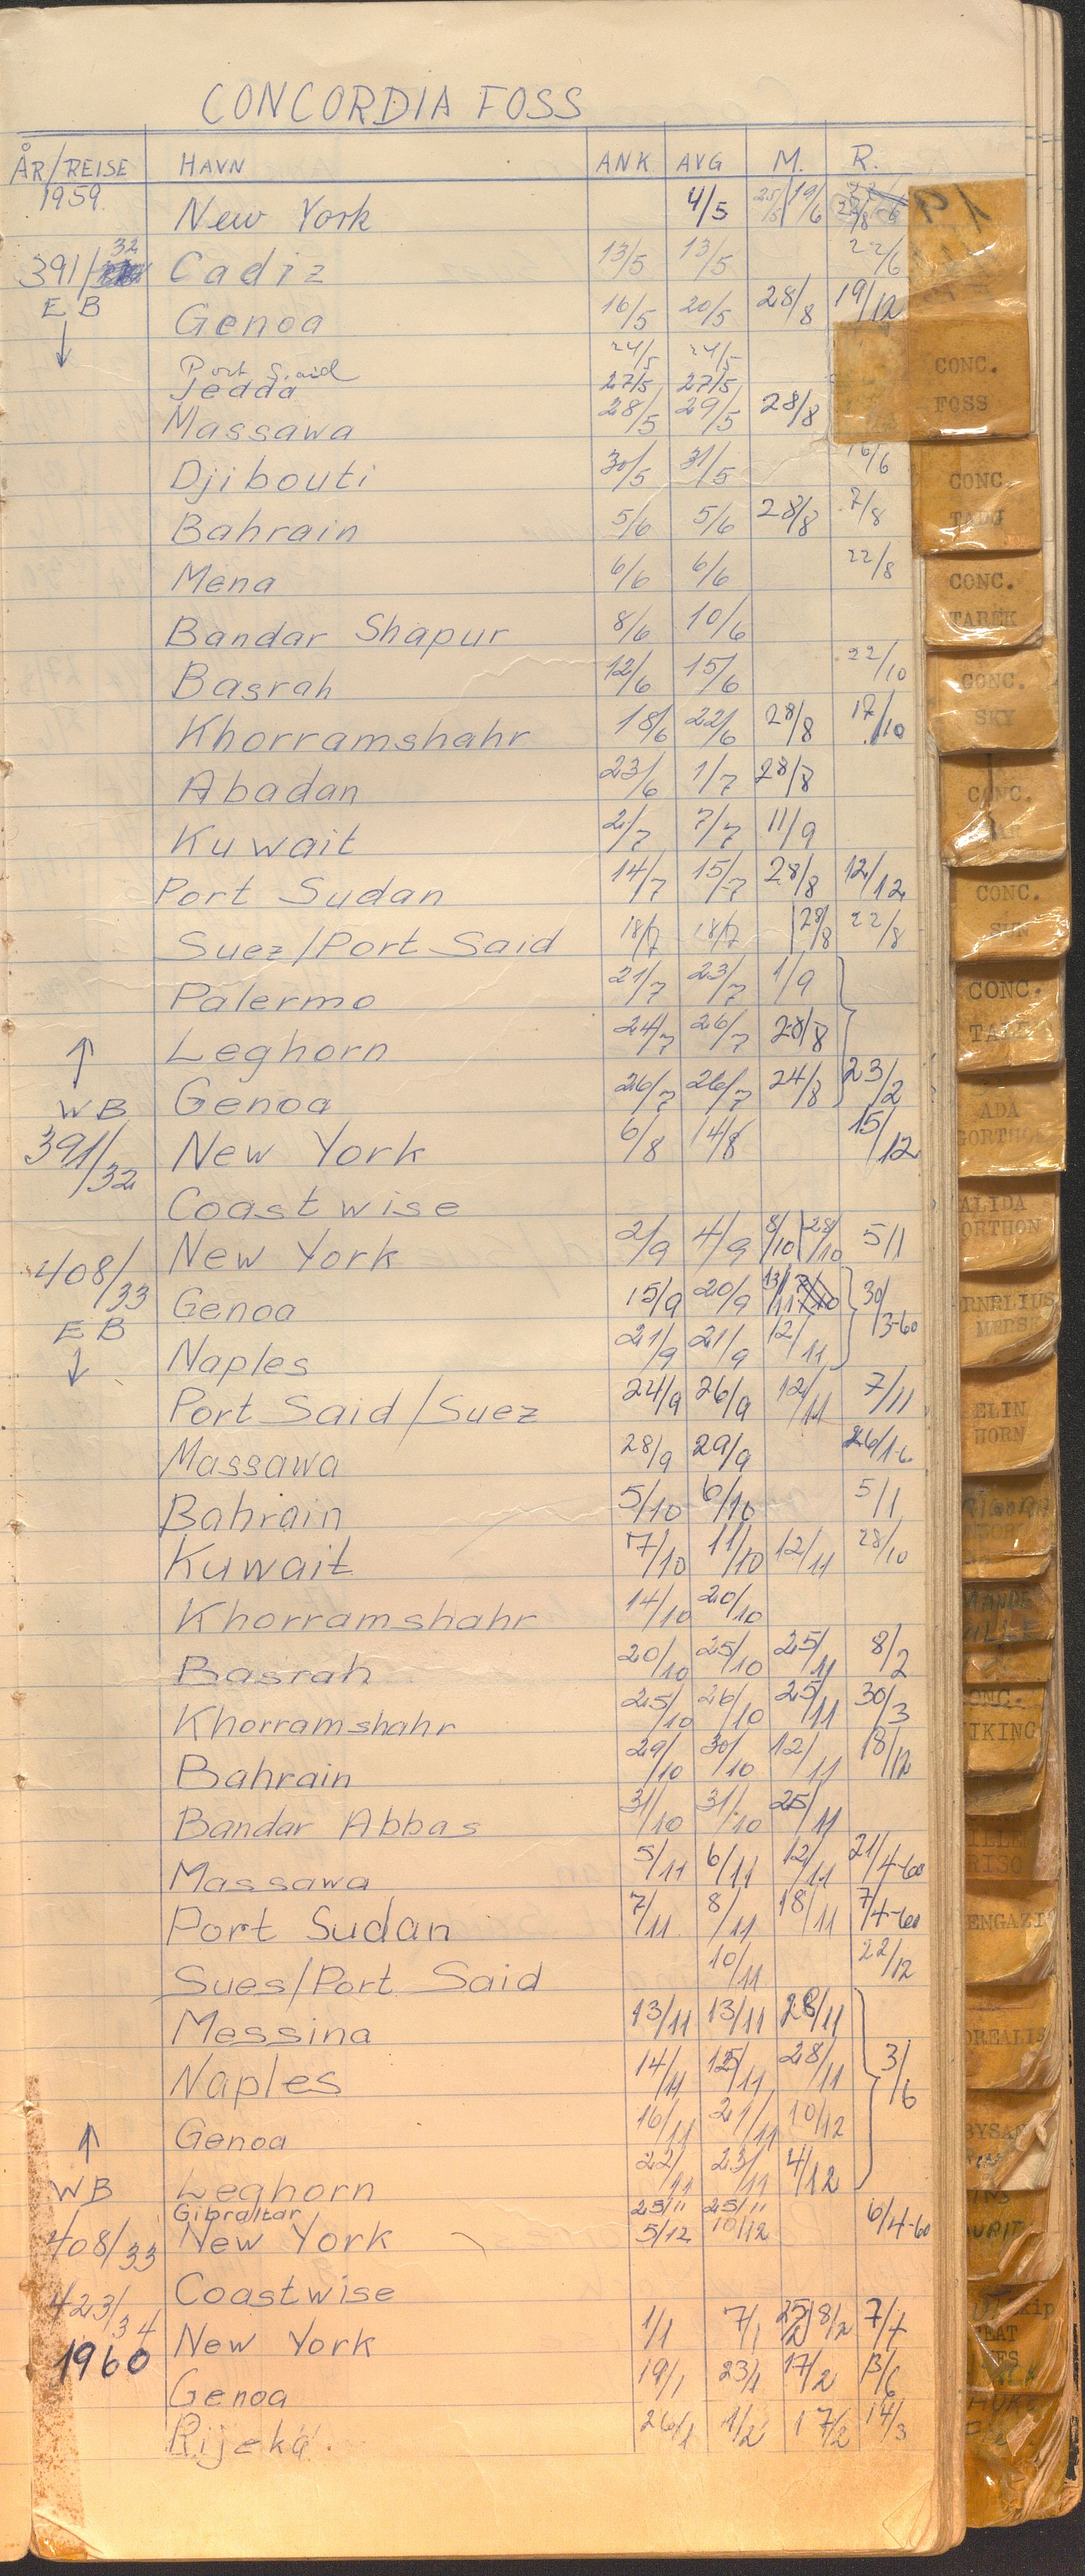 CONCORDIA FOSS
ÅR/REISE HAVN ANK AVG M. R.
1959 New York 4/5 25/5 19/6
391/32 Cadiz 13/5 13/5 22/6
EB Genoa 16/5 20/5 28/8 19/12
↓ Port Said 24/5 24/5
Jedda 27/5 27/5
Massawa 28/5 29/5 28/8
Djibouti 30/5 31/5 16/6
Bahrain 5/6 5/6 28/8 7/8
Mena 6/6 6/6 22/8
Bandar Shapur 8/6 10/6
Basrah 12/6 15/6 22/10
Khorramshahr 18/6 22/6 28/8 17/10
Abadan 23/6 1/7 28/8
Kuwait 2/7 7/7 11/9
Port Sudan 14/7 15/7 28/8 12/12
Suez/Port Said 18/7 18/7 28/8 22/8
Palermo 21/7 23/7 1/9
↑ Leghorn 24/7 26/7 28/8
WB Genoa 26/7 26/7 24/8 23/2
391/32 New York 6/8 14/8 15/12
Coastwise
408/33 New York 2/9 4/9 8/10 28/10 5/1
EB Genoa 15/9 20/9 13/11 30/3-60
↓ Naples 21/9 21/9 12/11
Port Said/Suez 24/9 26/9 12/11 7/11
Massawa 28/9 29/9 26/1-6
Bahrain 5/10 6/10 5/1
Kuwait 7/10 11/10 12/11 28/10
Khorramshahr 14/10 20/10
Basrah 20/10 25/10 25/11 8/2
Khorramshahr 25/10 26/10 25/11 30/3
Bahrain 29/10 30/10 12/11 18/12
Bandar Abbas 31/10 31/10 25/11
Massawa 5/11 6/11 12/11 21/4-60
Port Sudan 7/11 8/11 18/11 7/4-60
Sues/Port Said 10/11 22/12
Messina 13/11 13/11 28/11
Naples 14/11 15/11 28/11 3/6
↑ Genoa 16/11 21/11 10/12
WB Leghorn 22/11 23/11 4/12
Gibraltar 25/11 25/11
408/33 New York 5/12 10/12 6/4-60
423/34 Coastwise
1960 New York 1/1 7/1 25/2 8/2 7/4
Genoa 19/1 23/1 17/2 3/6
Rijeka 26/1 1/2 17/2 14/3
CONC.
FOSS
CONC.
TADJ
CONC.
TAREK
CONC.
SKY
CONC.
CONC.
SUN
CONC.
ADA
GORTHON
ALIDA
ORTHON
RNELIUS
MERSK
ELIN
HORN
ONC.
IKING
RISO
ENGAZI
OREALIS